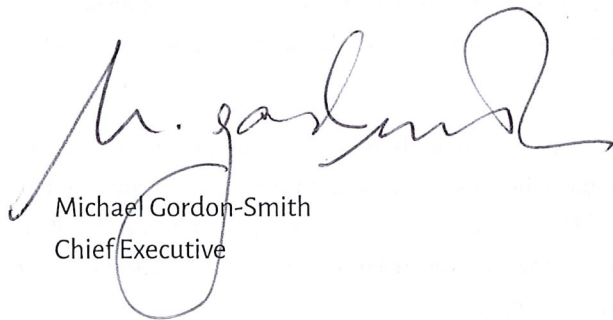 M. Gordon-Smith
Michael Gordon-Smith
Chief Executive